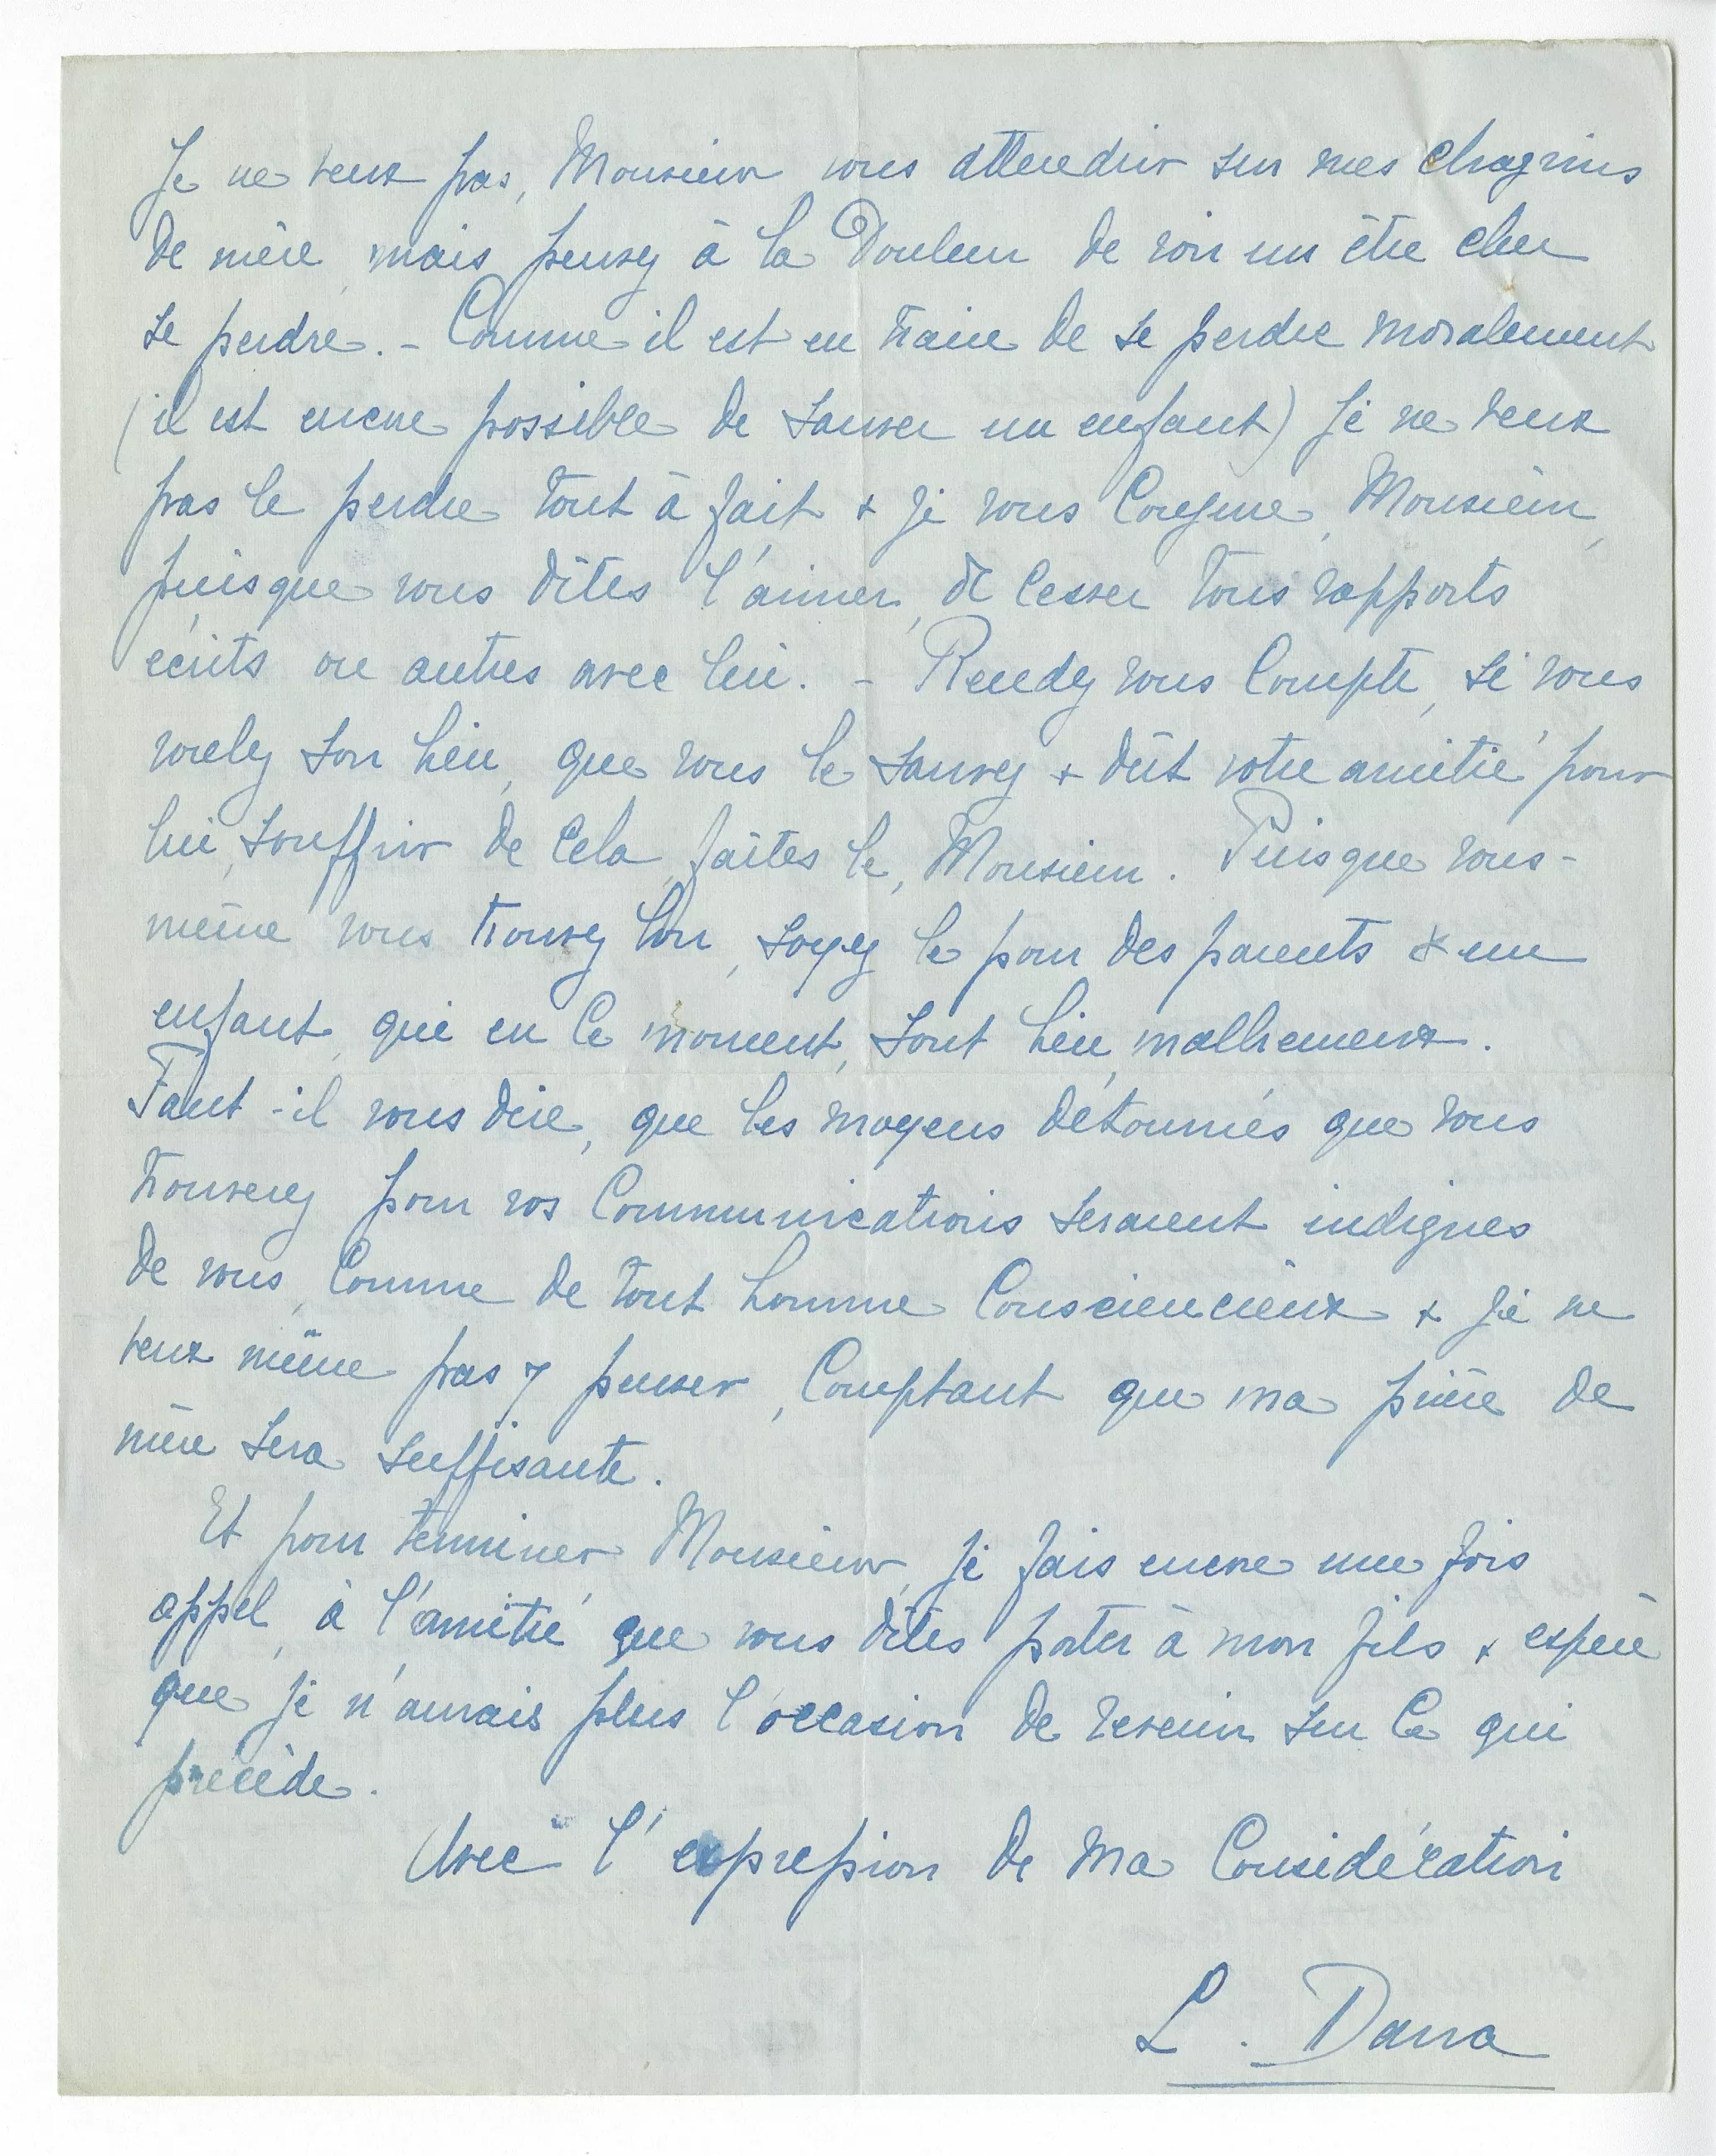 Je ne veux pas, Monsieur vous attendrir sur mes chagrins
de mère, mais pensez à la Douleur de voir un être cher
se perdre. - Comme il est en train de se perdre moralement
(il est encore possible de sauver un enfant) je ne veux
pas le perdre tout à fait & je vous conjure, Monsieur,
puisque vous dîtes l'aimer, de cesser tous rapports
écrits ou autres avec lui. - Rendez vous compte, si vous
voulez son bien, que vous le sauvez & dût votre amitié pour
lui, souffrir de cela, faîtes le, Monsieur. Puisque vous-
même vous trouvez bon, soyez le pour des parents & un
enfant, qui en ce moment, sont bien malheureux.
Faut-il vous dire, que les moyens détournés que vous
trouverez pour vos communications seraient indignes
de vous, comme de tout homme consciencieux & je ne
veux même pas y penser, comptant que ma prière de
mère sera suffisante.
Et pour terminer Monsieur, je fais encore une fois
appel, à l'amitié que vous dîtes porter à mon fils & espère
que je n'aurais plus l'occasion de revenir sur ce qui
précède.
Avec l'expression de ma Considération
L. Danna